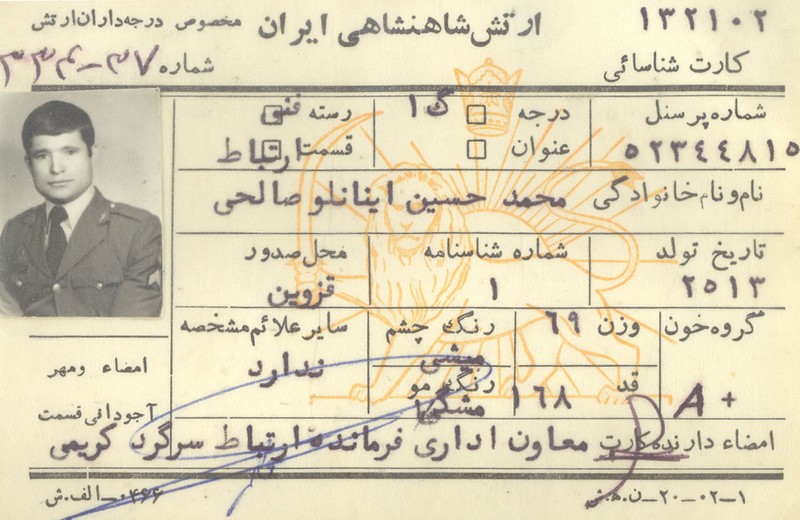 ارتش شاهنشاهی ایران
مخصوص درجه‌داران ارتش
۱۳۲۱۰۲
کارت شناسائی
شماره
شماره پرسنل
درجه
گ۱
رسته
فنی
۵۲۳۴۴۸۱۵
عنوان
قسمت
ارتباط
نام و نام خانوادگی
محمد حسین اینانلو صالحی
تاریخ تولد
شماره شناسنامه
محل صدور
۲۵۱۳
۱
قزوین
گروه خون
وزن ۶۹
رنگ چشم
سایر علائم مشخصه
میشی
ندارد
A +
قد ۱۶۸
رنگ مو
مشگی
امضاء ومهر
آجودانی قسمت
امضاء دارنده کارت
معاون اداری فرمانده ارتباط سرگرد کریمی
۱-۰۲-۲۰-ن.ه.ش
۰۴۶۶-الف.ش